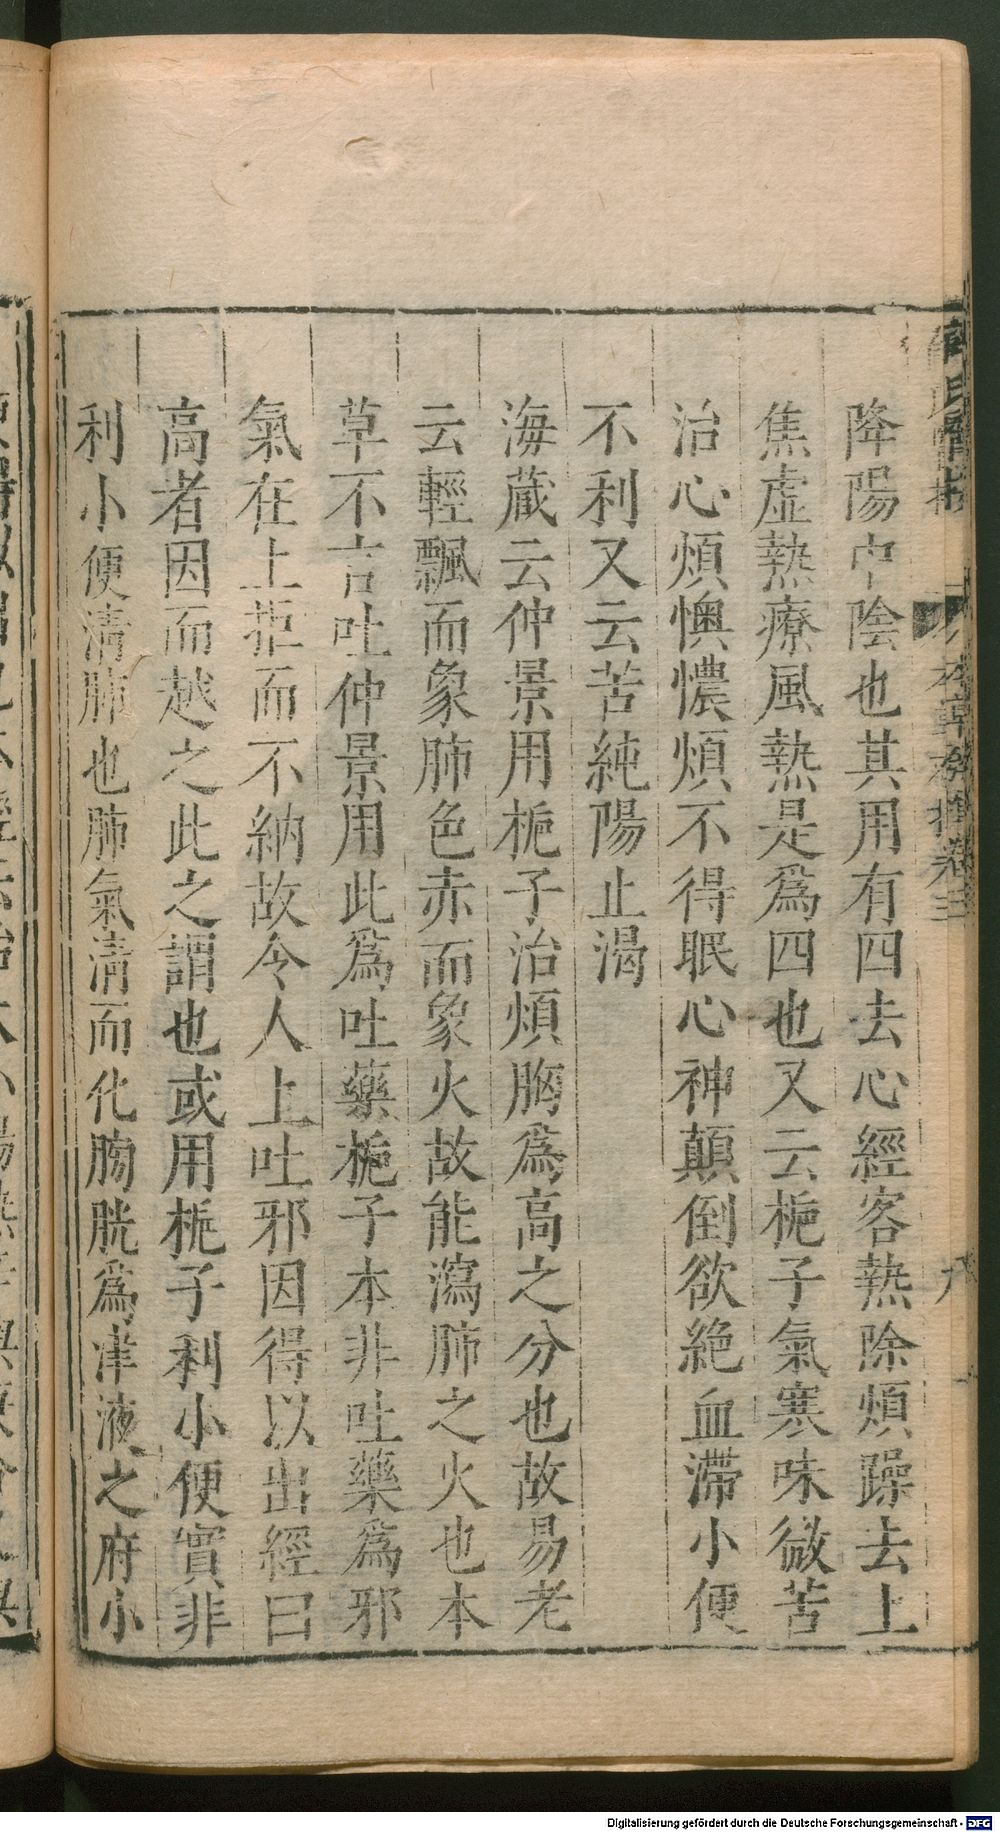 降陽中陰也其用有四去心經客熱除煩躁去上
焦虛熱療風熱是爲四也又云梔子氣寒味微苦
治心煩懊憹煩不得眠心神顛倒欲絶血滯小便
不利又云苦純陽止渴
海蔵云仲景用梔子治煩胸爲高之分也故易老
云輕飄而象肺色赤而象火故能瀉肺之火也本
草不言吐仲景用此爲吐藥梔子本非吐藥爲邪
氣在上拒而不納故令人上吐邪因得以出經曰
高者因而越之此之謂也或用梔子利小便實非
利小便清肺也肺氣清而化膀胱爲津液之府小
Digitalisierung gefördert durch die Deutsche Forschungsgemeinschaft - DFG